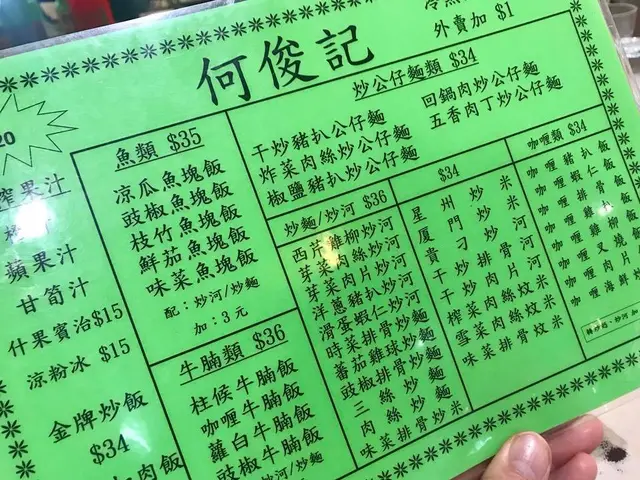 何俊記
外賣加 $1
20
果汁
蘋果汁
甘筍汁
什果賓治$15
涼粉冰 $15
金牌炒飯
$34
肉飯
魚類 $35
涼瓜魚塊飯
豉椒魚塊飯
枝竹魚塊飯
鮮茄魚塊飯
味菜魚塊飯
配：炒河/炒麵
加：3元
牛腩類 $36
柱候牛腩飯
咖喱牛腩飯
蘿白牛腩飯
豉椒牛腩飯
炒公仔麵類 $34
干炒豬扒公仔麵
炸菜肉絲炒公仔麵
椒鹽豬扒炒公仔麵
回鍋肉炒公仔麵
五香肉丁炒公仔麵
炒麵/炒河 $36
西芹雞柳炒河
芽菜肉絲炒河
芽菜肉片炒河
洋蔥豬扒炒河
滑蛋蝦仁炒河
時菜排骨炒麵
番茄雞球炒麵
豉椒排骨炒麵
三絲炒麵
肉絲炒麵
味菜排骨炒米
$34
星州炒米
厦門炒米
貴刁炒河
干炒排骨河
干炒肉片河
榨菜肉絲炆米
雪菜肉絲炆米
味菜排骨炆米
咖喱類 $34
咖喱豬扒飯
咖喱蝦仁飯
咖喱排骨飯
咖喱雞扒飯
咖喱雞柳飯
咖喱叉燒飯
咖喱肉片飯
咖喱海鮮飯